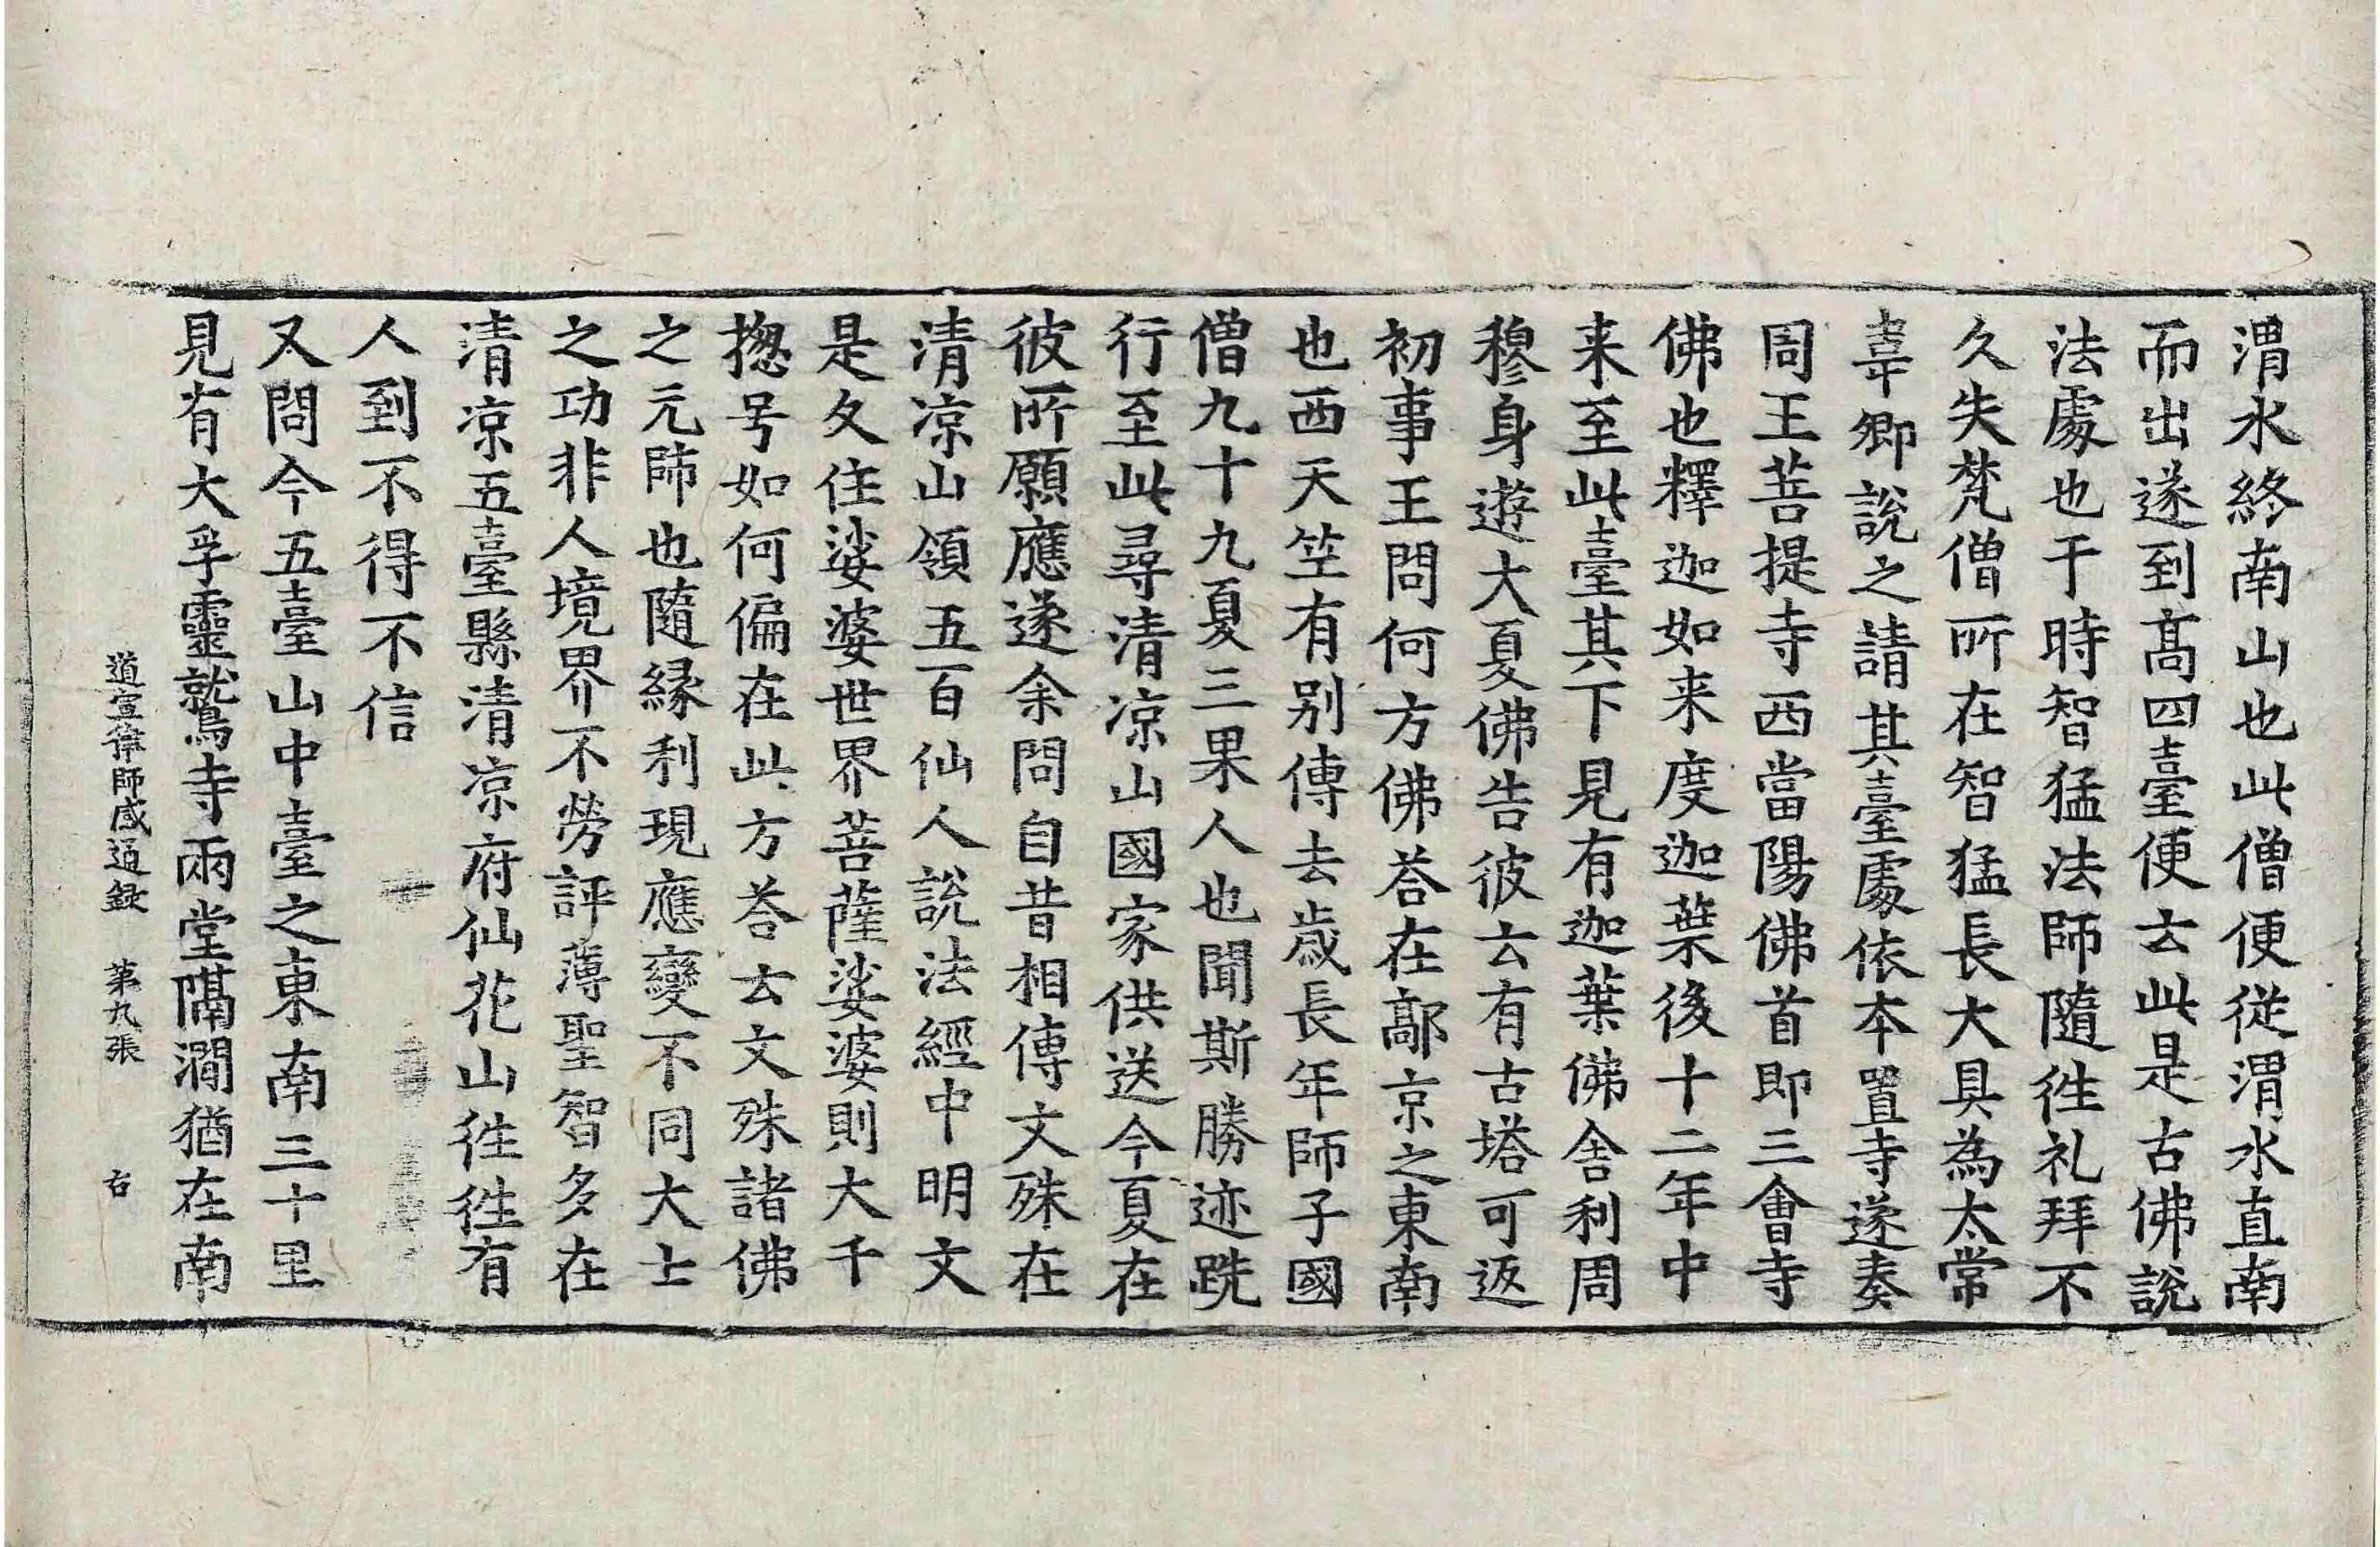 渭水終南山也此僧便從渭水直南
而出遂到髙四臺便云此是古佛說
法處也于時智猛法師隨徃礼拜不
久失梵僧所在智猛長大具為太常
韋卿說之請其臺處依本置寺遂奏
周王菩提寺西當陽佛首即三會寺
佛也釋迦如来度迦葉後十二年中
来至此臺其下見有迦葉佛舍利周
穆身遊大夏佛告彼云有古塔可返
初事王問何方佛荅在鄗京之東南
也西天竺有别傳去歳長年師子國
僧九十九夏三果人也聞斯勝迹跣
行至此尋清凉山國家供送今夏在
彼所願應遂余問自昔相傳文殊在
清凉山領五百仙人說法經中明文
是久住娑婆世界菩薩娑婆則大千
揔号如何偏在此方荅云文殊諸佛
之元師也隨縁利現應變不同大士
之功非人境界不勞評薄聖智多在
清凉五臺縣清凉府仙花山徃徃有
人到不得不信
又問今五臺山中臺之東南三十里
見有大孚靈鷲寺兩堂隔澗猶在南
道宣律師感通録　第九張　右